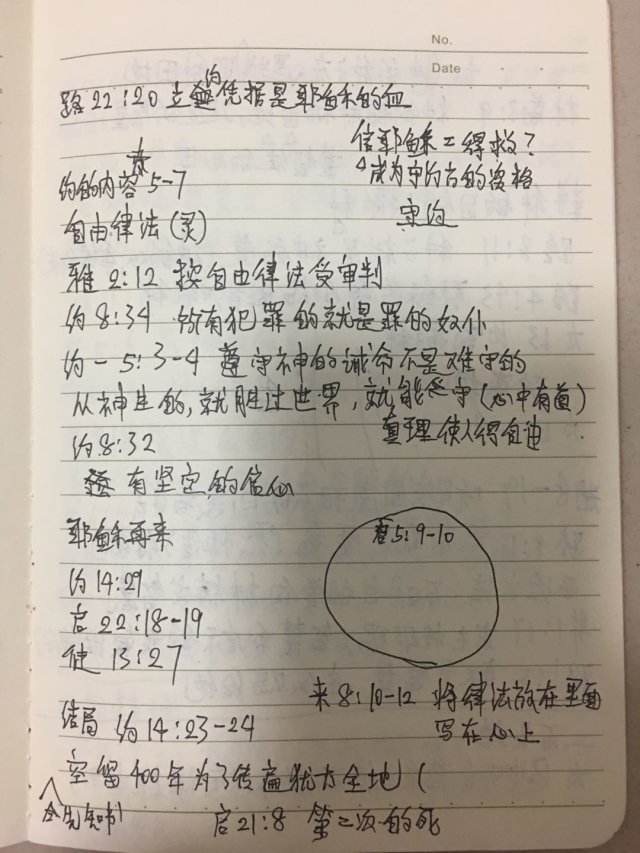 No.
Date
路22:20 立约凭据是耶稣的血
信耶稣=得救?
成为守约者的资格
约的内容 太5-7
守约
自由律法(灵)
雅2:12 按自由律法受审判
约8:34 所有犯罪的就是罪的奴仆
约一5:3-4 遵守神的诫命不是难守的
从神生的,就胜过世界,就能守(心中有道)
约8:32 真理使人得自由
有坚定的信心
耶稣再来
启5:9-10
约14:29
启22:18-19
使13:27
来8:10-12 将律法放在里面
写在心上
结局 约14:23-24
空留400年为了传遍犹太全地(
启21:8 第二次的死